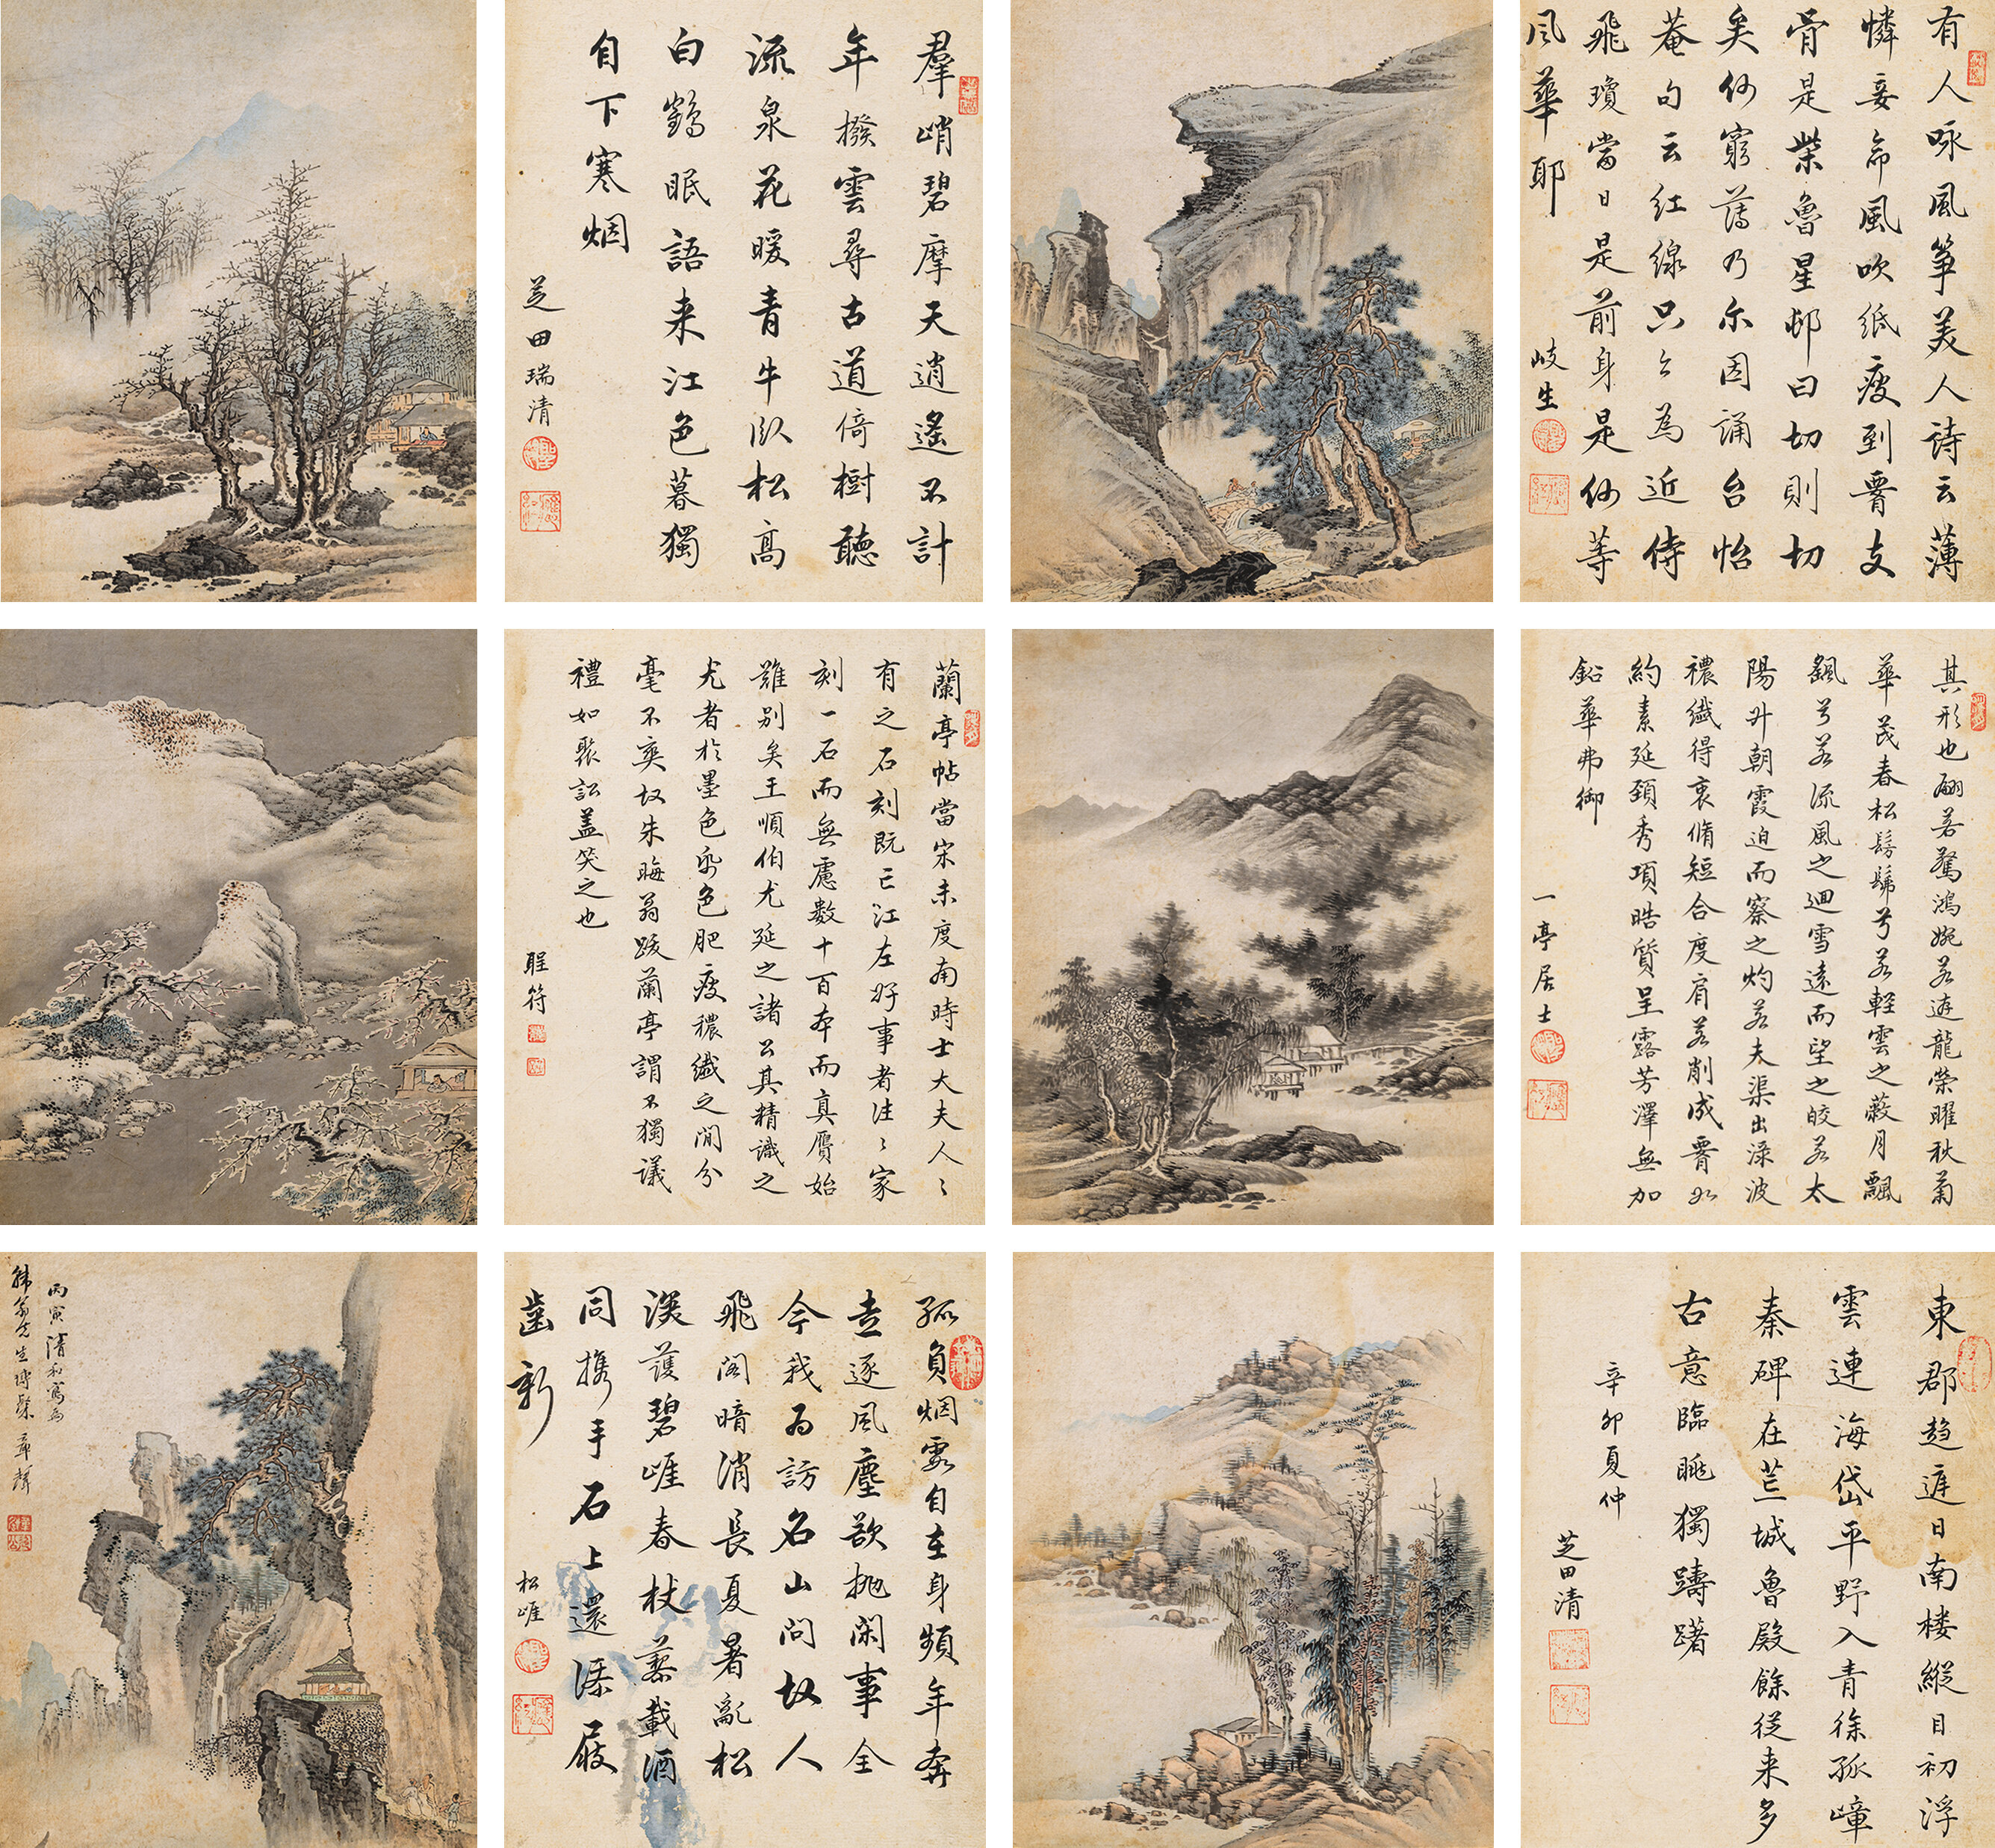 羣峭碧摩天逍遙不計
年撥雲尋古道倚樹聽
流泉花暖青牛臥松高
白鶴眠語来江色暮獨
自下寒烟
芝田瑞清
有人咏風箏美人詩云薄
憐妾命風吹紙瘦到霄支
骨是柴魯星邨曰切則切
矣何窮薄乃尔因誦台怡
菴句云红線只今為近侍
飛瓊當日是前身是何等
風華耶
岐生
蘭亭帖當宋未度南時士大夫人〻
有之石刻既亡江左好事者往〻家
刻一石而無慮數十百本而真贋始
難別矣王順伯尤延之諸公其精識之
尤者於墨色紙色肥瘦穠纖之間分
毫不爽故朱晦翁跋蘭亭謂不獨議
禮如聚訟蓋笑之也
聖符
其形也翩若驚鴻婉若遊龍榮曜秋菊
華茂春松髣髴兮若軽雲之蔽月飄
飖兮若流風之迴雪遠而望之皎若太
陽升朝霞迫而察之灼若夫渠出渌波
穠纖得衷脩短合度肩若削成霄如
約素延頚秀項皓質呈露芳澤無加
鉛華弗御
一亭居士
丙寅清和寫為
先生
孤負烟霞自在身頻年奔
走逐風塵欲抛閑事全
今我为訪名山問故人
飛閣暗消長夏暑亂松
深護碧崕春杖藜載酒
同携手石上還深屐
齒新
松崕
東郡趋庭日南楼縱目初浮
雲連海岱平野入青徐孤嶂
秦碑在荒城魯殿餘従来多
古意臨眺獨躊躇
辛卯夏仲
芝田清